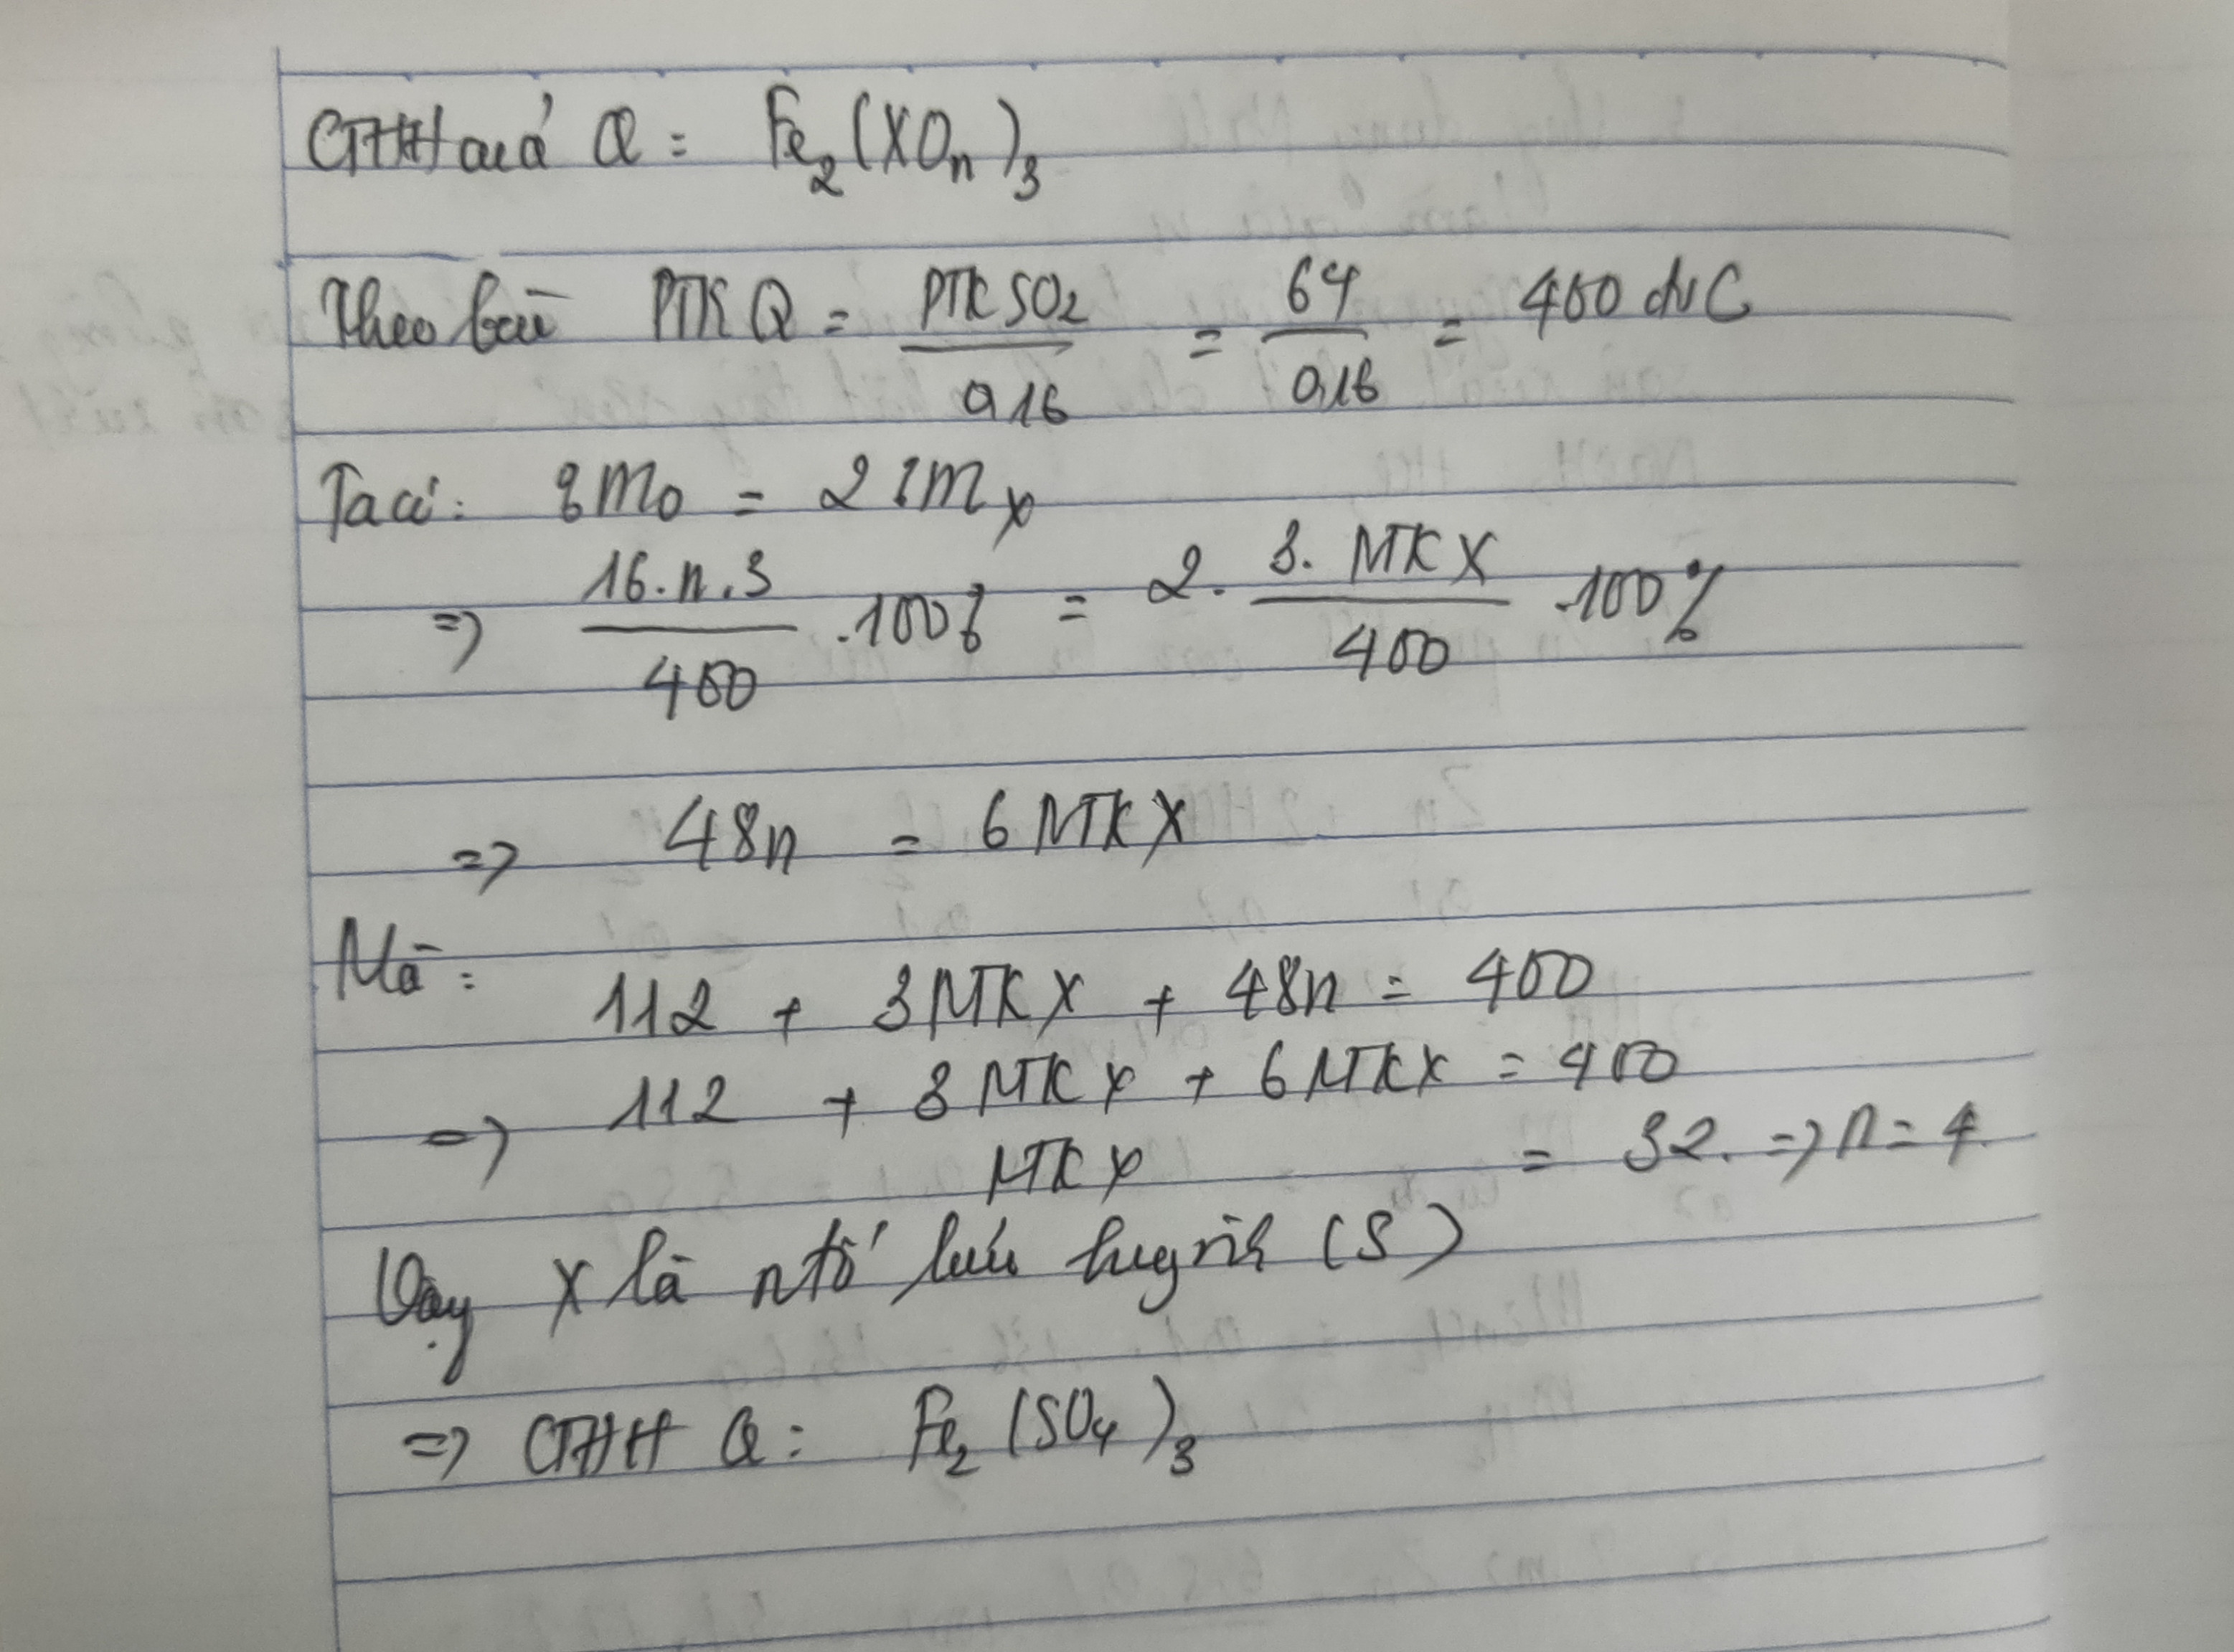 CTHH quá Q: Fe₂(XOₙ)₃
Theo bài PTK Q = PTK SO₂ / 0,16 = 64 / 0,16 = 400 đvC
Ta có: %mO = 2 %mX
=> 16.n.3 / 400 .100% = 2. 3. NTK X / 400 .100%
=> 48n = 6 NTK X
Mà: 112 + 3 NTK X + 48n = 400
=> 112 + 3 NTK X + 6 NTK X = 400
NTK X = 32. => n = 4
Vậy X là ntố lưu huỳnh (S)
=> CTHH Q: Fe₂(SO₄)₃